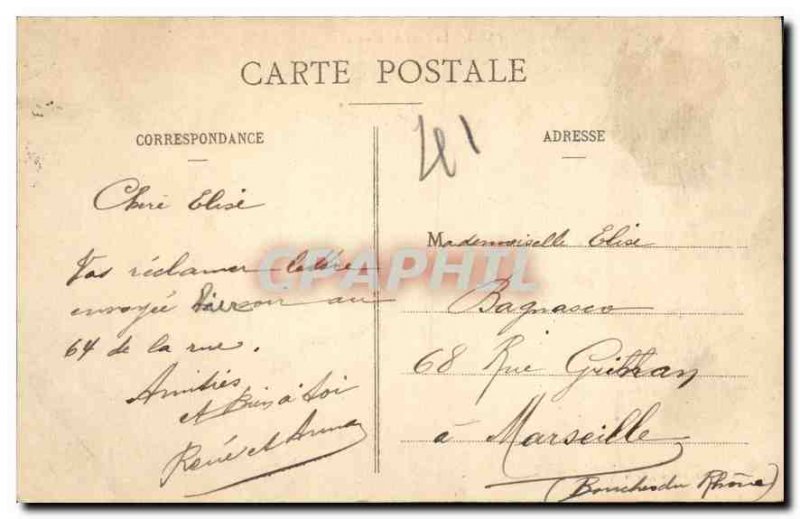 CARTE POSTALE
CORRESPONDANCE
ADRESSE
Chère Elise
Vas réclamer lettre
envoyée au
64 de la rue.
Amitiés
et Bien à toi
René et Anna
Mademoiselle Elise
Bagnasco
68 Rue
à Marseille
(Bouches du Rhône)
CPAPHIL